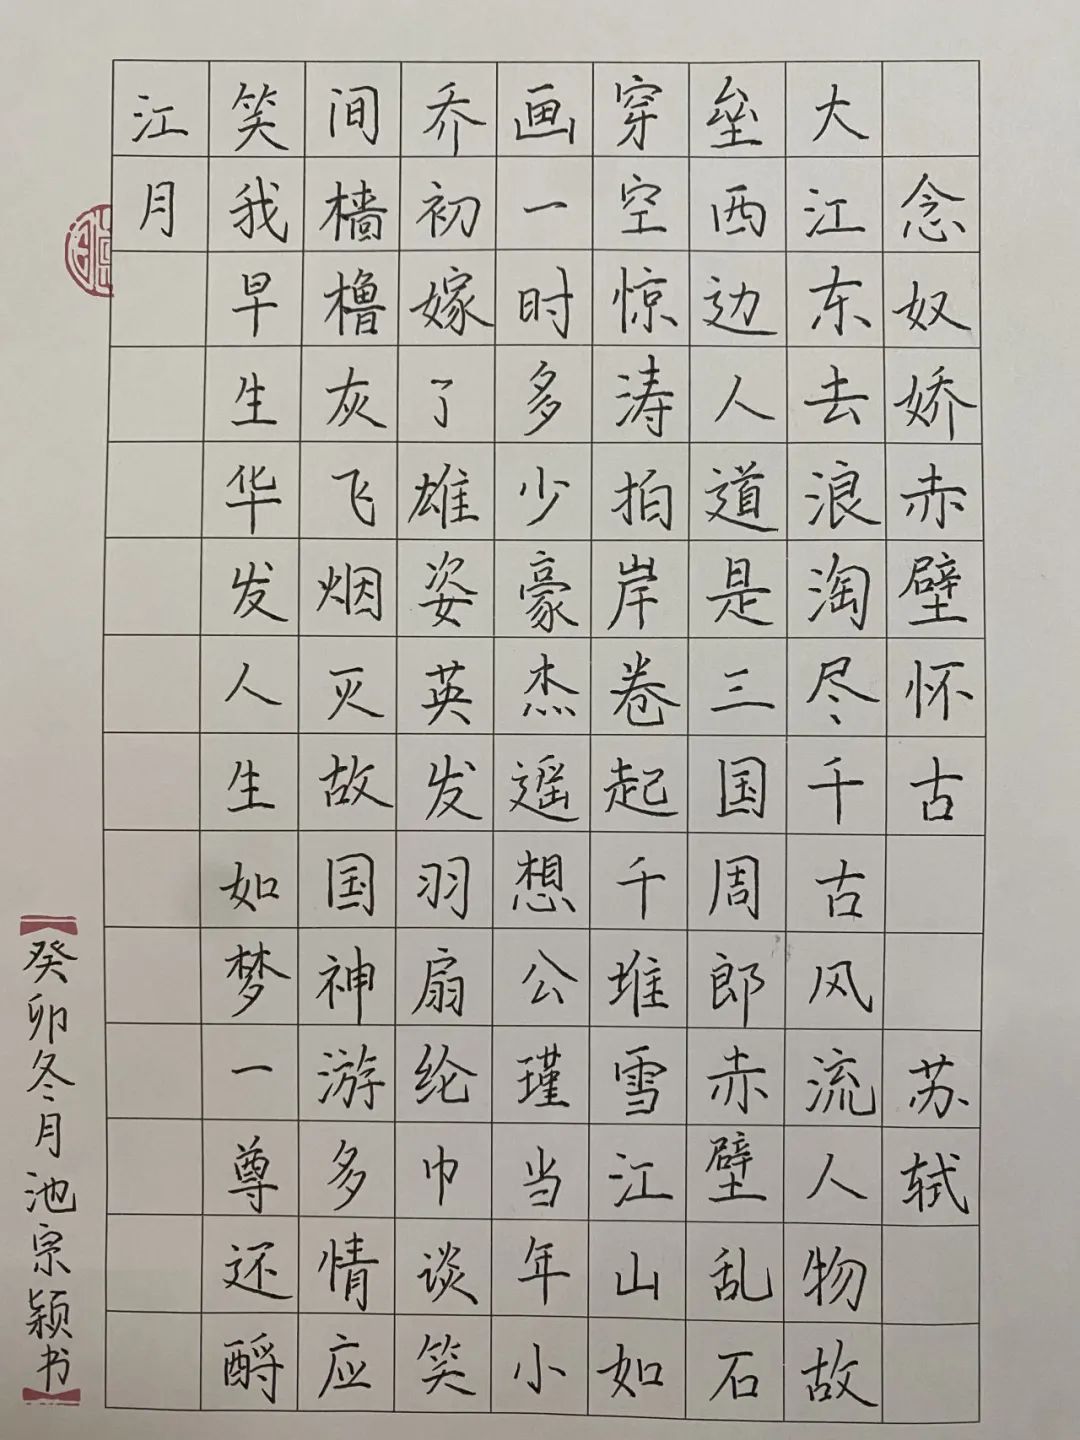 念奴娇赤壁怀古 苏轼
大江东去浪淘尽千古风流人物故
垒西边人道是三国周郎赤壁乱石
穿空惊涛拍岸卷起千堆雪江山如
画一时多少豪杰遥想公瑾当年小
乔初嫁了雄姿英发羽扇纶巾谈笑
间樯橹灰飞烟灭故国神游多情应
笑我早生华发人生如梦一尊还酹
江月
癸卯冬月池宗颖书